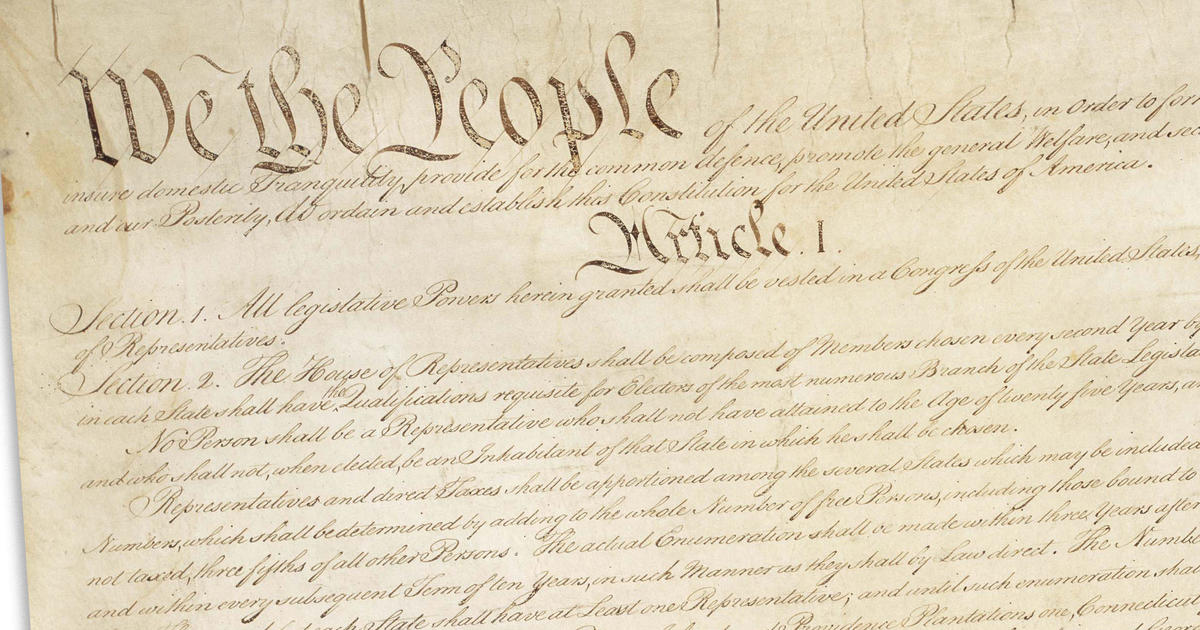 We the People of the United States, in Order to for
insure domestic Tranquility, provide for the common defence, promote the general Welfare, and sec
and our Posterity, do ordain and establish this Constitution for the United States of America.
Article. I.
Section. 1. All legislative Powers herein granted shall be vested in a Congress of the United States,
of Representatives.
Section. 2. The House of Representatives shall be composed of Members chosen every second Year by
in each State shall have the Qualifications requisite for Electors of the most numerous Branch of the State Legisla
No Person shall be a Representative who shall not have attained to the Age of twenty five Years, a
and who shall not, when elected, be an Inhabitant of that State in which he shall be chosen.
Representatives and direct Taxes shall be apportioned among the several States which may be included
Numbers, which shall be determined by adding to the whole Number of free Persons, including those bound to
not taxed, three fifths of all other Persons. The actual Enumeration shall be made within three Years after
and within every subsequent Term of ten Years, in such Manner as they shall by Law direct. The Numbe
each State shall have at Least one Representative; and until such enumeration shal
Providence Plantations one, Connecticut